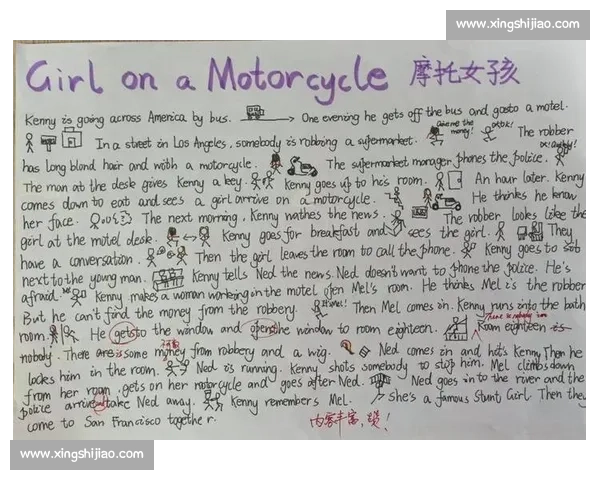 www.xingshijiao.com
Girl on a Motorcycle 摩托女孩
Kenny is going across America by bus. → One evening he gets off the bus and gosto a motel.
Give me the money! OK!OK!
In a street in Los Angeles, somebody is robbing a supermarket. The robber
has long blond hair and with a motorcycle. The supermarket manager phones the police.
The man at the desk gives Kenny a key. Kenny goes up to his room. An hour later. Kenny
comes down to eat and sees a girl arrive on a motorcycle. He thinks he know
her face. The next morning, Kenny wathes the news. The robber looks like the
girl at the motel desk. Kenny goes for breakfast and sees the girl. They
have a conversation. Then the girl leaves the room to call the phone. Kenny goes to
next to the young man. Kenny tells Ned the news. Ned doesn't want to phone the police. He's
afraid. Kenny makes a woman working in the motel open Mel's room. He thinks Mel is the robber
But he can't find the money from the robbery. Then Mel comes in. Kenny runs into the bath
room. He gets to the window and open the window to room eighteen. Room eighteen is
nobody. There are is some money from robbery and a wig. Ned comes in and hits Kenny. Then he
locks him in the room. Ned is running. Kenny shots somebody to stop him. Mel climbs down
from her room, gets on her motorcycle and goes after Ned. Ned goes into the river and the
police arrive take Ned away. Kenny remembers Mel. She's a famous Stunt Girl. Then they
come to San Francisco together.
内容丰富,
www.xingshijiao.com
www.xingshijiao.com